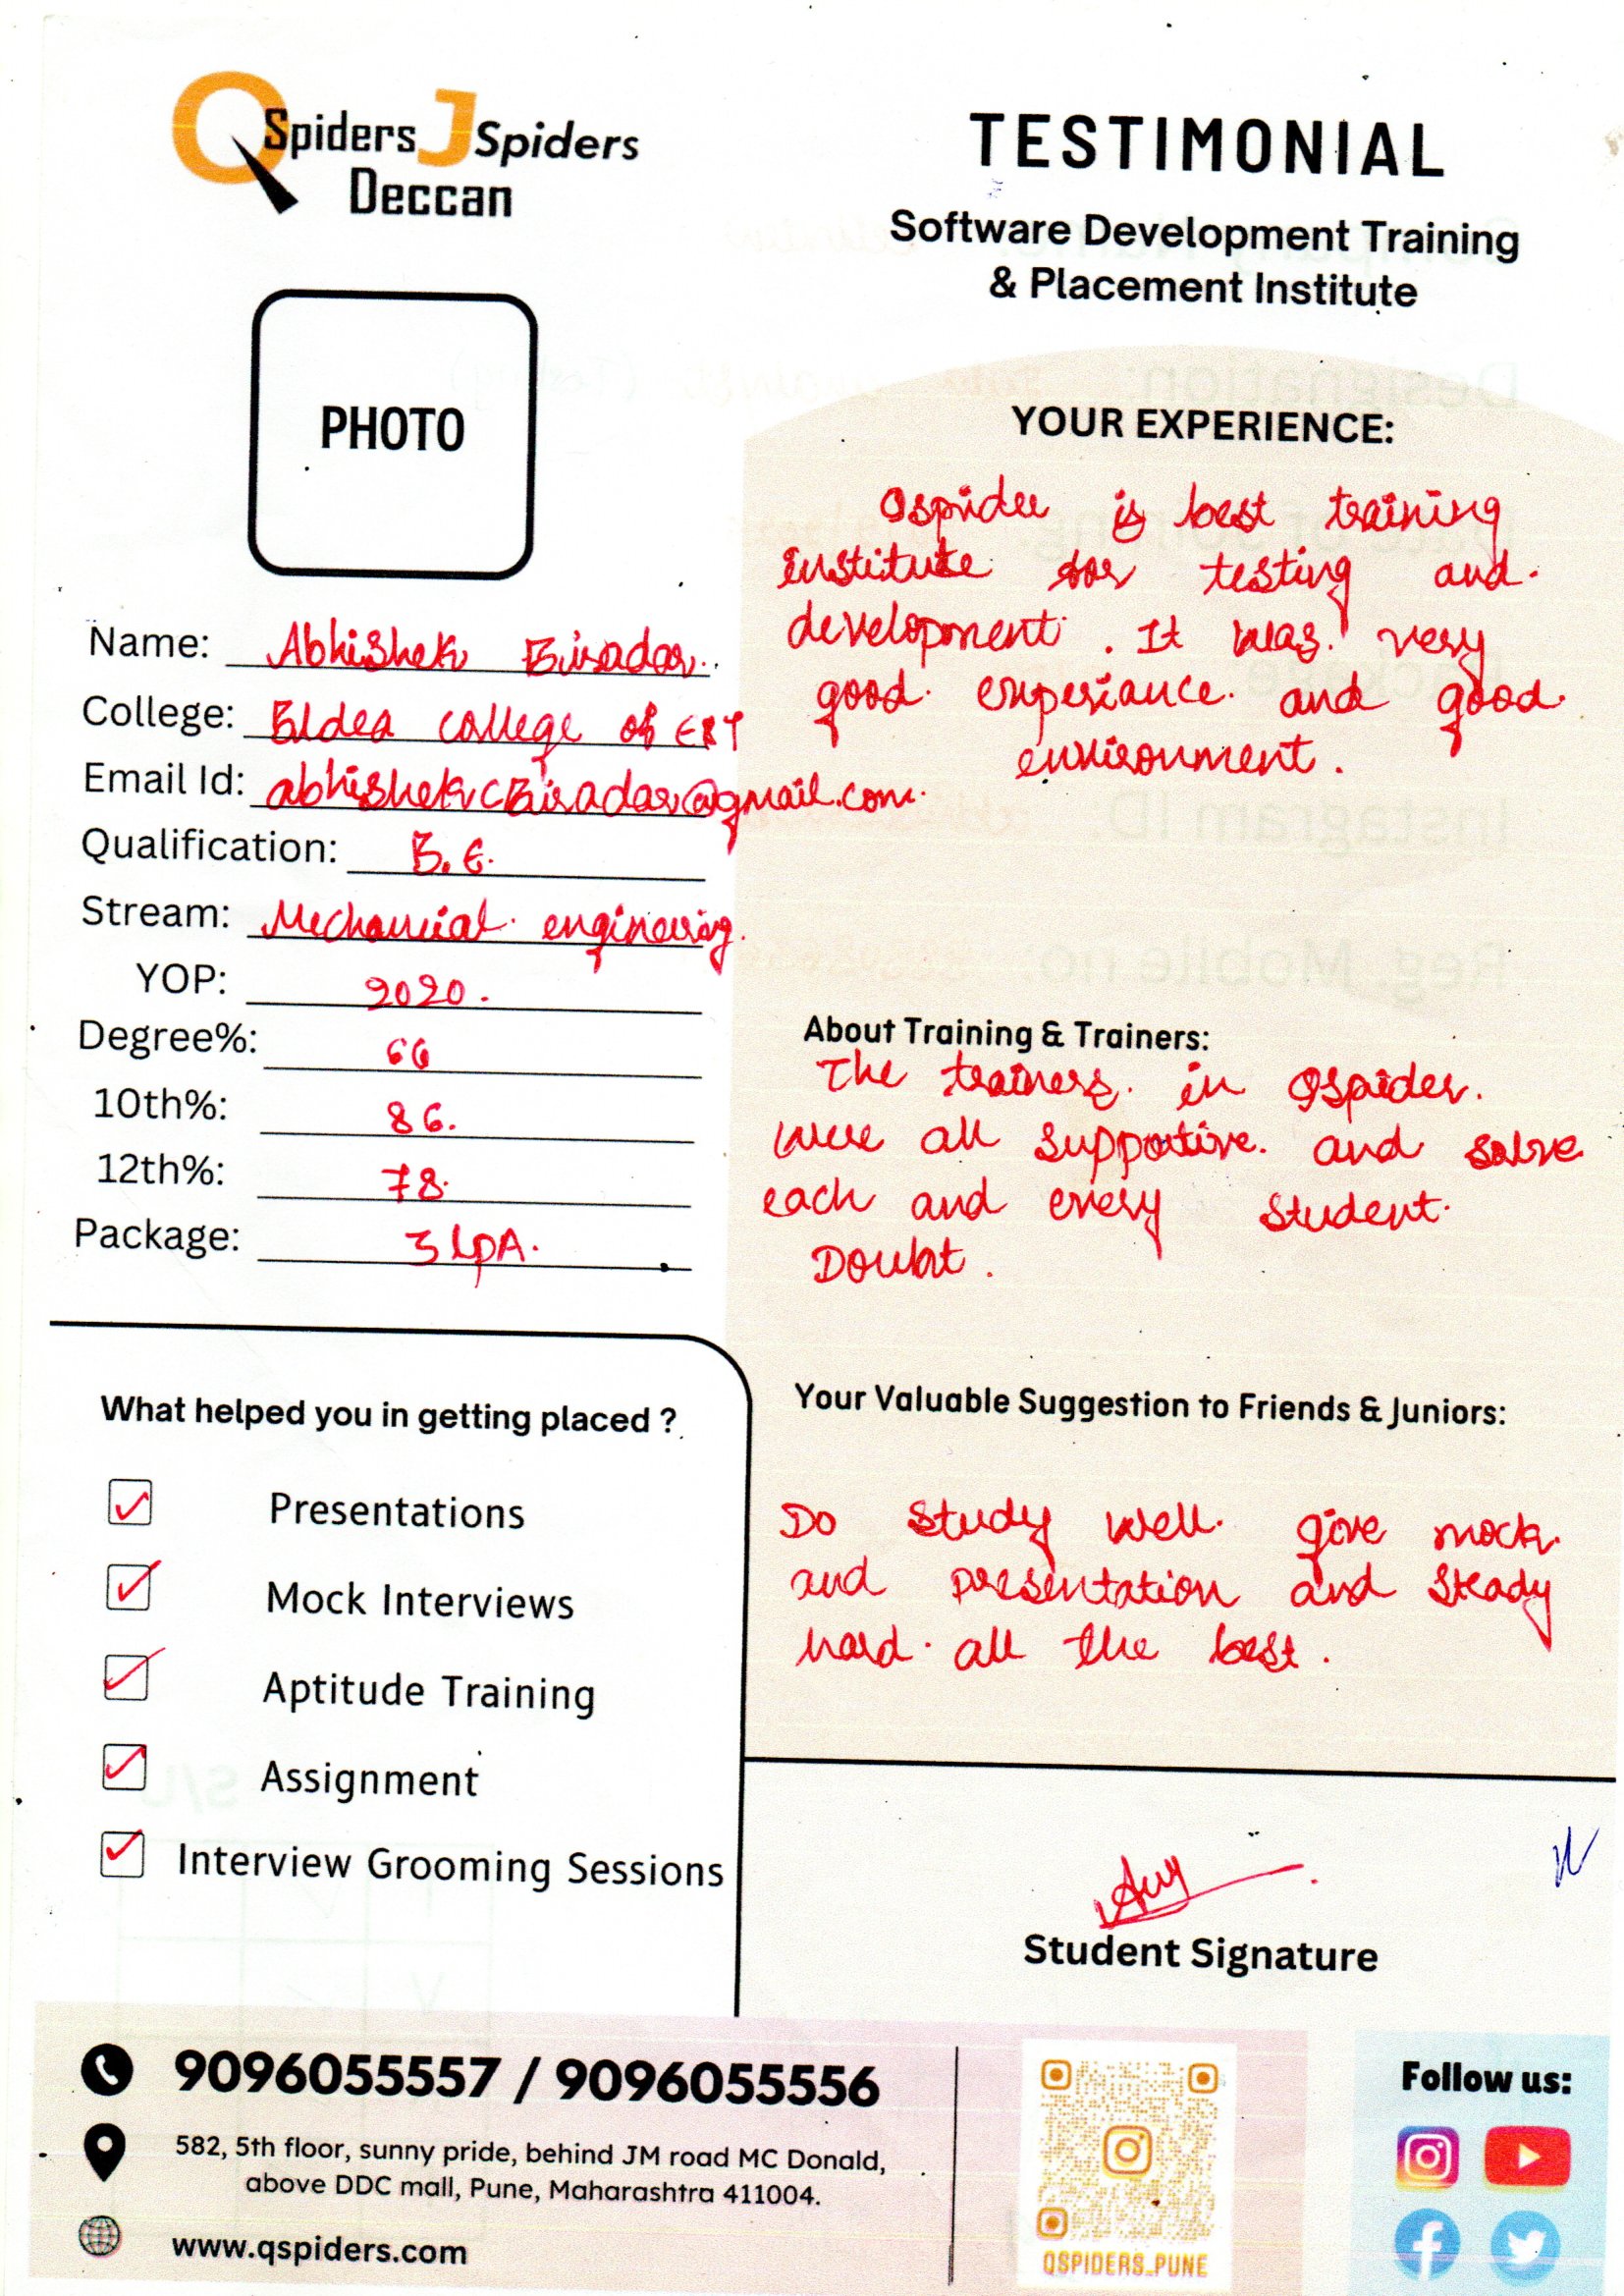 QSpiders JSpiders
Deccan
TESTIMONIAL
Software Development Training
& Placement Institute
PHOTO
Name: Abhishek Biradar.
College: Bldea college of E&T
Email Id: abhishekcBiradar@gmail.com.
Qualification: B.E.
Stream: Mechancial engineering.
YOP: 2020.
Degree%: 66
10th%: 86.
12th%: 78.
Package: 3 LPA.
YOUR EXPERIENCE:
Qspider is best training
institute for testing and
development. It was very
good experiance and good
environment.
About Training & Trainers:
The trainers in Qspider.
were all supportive and solve
each and every student.
Doubt.
What helped you in getting placed ?
Presentations
Mock Interviews
Aptitude Training
Assignment
Interview Grooming Sessions
Your Valuable Suggestion to Friends & Juniors:
Do study well. give mock
and presentation and steady
hard. all the best.
Student Signature
9096055557 / 9096055556
582, 5th floor, sunny pride, behind JM road MC Donald,
above DDC mall, Pune, Maharashtra 411004.
www.qspiders.com
QSPIDERS_PUNE
Follow us: